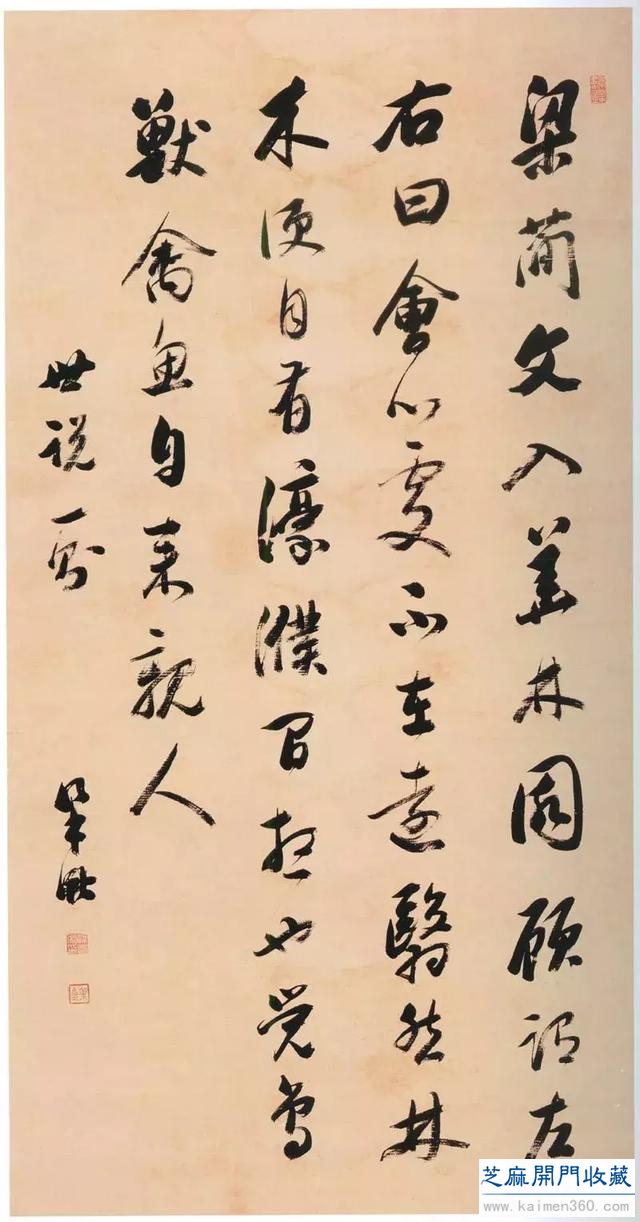 梁簡文入華林園顧謂左
右曰會心處不在遠翳然林
木便自有濠濮間想也覺鳥
獸禽魚自來親人
世説一則
芝麻開門收藏
www.kaimen360.com